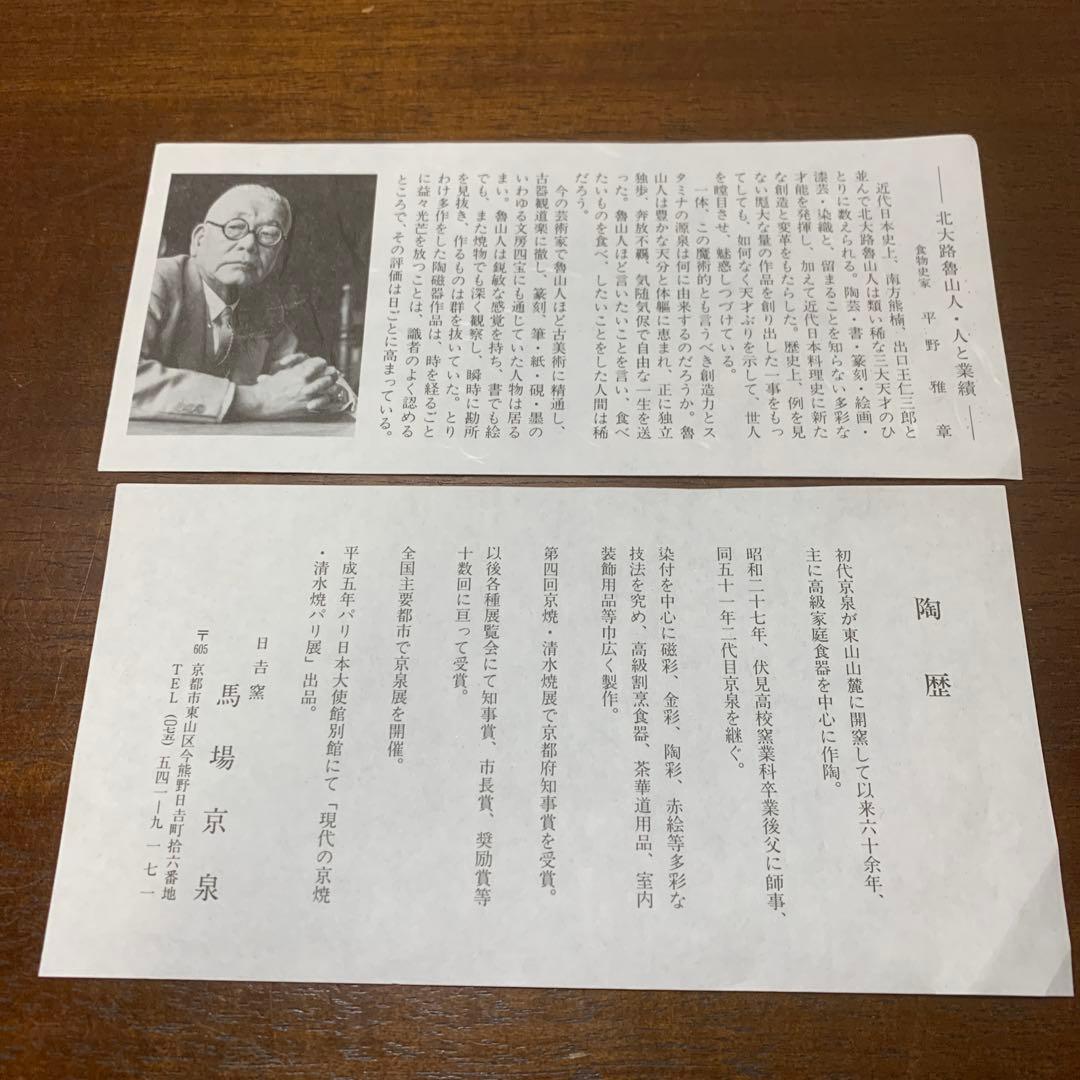 ― 北大路魯山人・人と業績 ―
食物史家 平野雅章
近代日本史上、南方熊楠、出口王仁三郎と
並んで北大路魯山人は類い稀な三大天才のひ
とりに数えられる。陶芸・書・篆刻・絵画・
漆芸・染織と、留まることを知らない多彩な
才能を発揮し、加えて近代日本料理史に新た
な創造と変革をもたらした。歴史上、例を見
ない厖大な量の作品を創り出した一事をもっ
てしても、如何なく天才ぶりを示して、世人
を瞠目させ、魅惑しつづけている。
一体、この魔術的とも言うべき創造力とス
タミナの源泉は何に由来するのだろうか。魯
山人は豊かな天分と体軀に恵まれ、正に独立
独歩、奔放不羈、気随気儘で自由な一生を送
った。魯山人ほど言いたいことを言い、食べ
たいものを食べ、したいことをした人間は稀
だろう。
今の芸術家で魯山人ほど古美術に精通し、
古器観道楽に徹し、篆刻、筆・紙・硯・墨の
いわゆる文房四宝にも通じていた人物は居る
まい。魯山人は鋭敏な感覚を持ち、書でも絵
でも、また焼物でも深く観察し、瞬時に勘所
を見抜き、作るものは群を抜いていた。とり
わけ多作をした陶磁器作品は、時を経るごと
に益々光芒を放つことは、識者のよく認める
ところで、その評価は日ごとに高まっている。
陶歴
初代京泉が東山山麓に開窯して以来六十余年、
主に高級家庭食器を中心に作陶。
昭和二十七年、伏見高校窯業科卒業後父に師事、
同五十一年二代目京泉を継ぐ。
染付を中心に磁彩、金彩、陶彩、赤絵等多彩な
技法を究め、高級割烹食器、茶華道用品、室内
装飾用品等巾広く製作。
第四回京焼・清水焼展で京都府知事賞を受賞。
以後各種展覧会にて知事賞、市長賞、奨励賞等
十数回に亘って受賞。
全国主要都市で京泉展を開催。
平成五年パリ日本大使館別館にて「現代の京焼
・清水焼パリ展」出品。
日吉窯
馬場京泉
〒605 京都市東山区今熊野日吉町拾六番地
TEL (〇七五) 五四一―九一七一